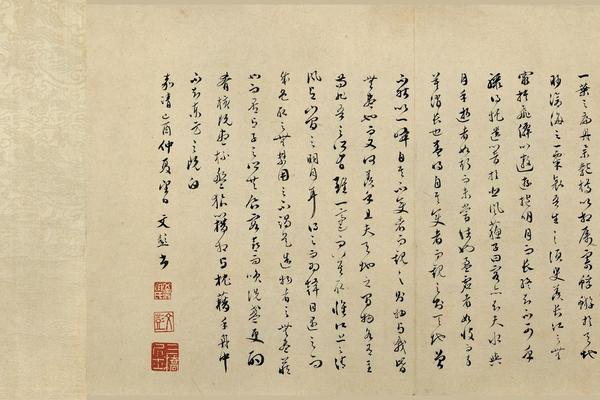 一葉之扁舟舉匏樽以相屬寄蜉蝣於天地
眇滄海之一粟哀吾生之須臾羨長江之無
窮挾飛僊以遨遊抱明月而長終知不可乎
驟得託遺響於悲風蘇子曰客亦知夫水與
月乎逝者如斯而未嘗往也盈虛者如彼而卒
莫消長也蓋將自其變者而觀之則天地曾
不能以一瞬自其不變者而觀之則物與我皆
無盡也而又何羨乎且夫天地之間物各有主
苟非吾之所有雖一毫而莫取惟江上之清
風與山間之明月耳得之而為聲目遇之而
成色取之無禁用之不竭是造物者之無盡藏
也而吾與子之所共食客喜而笑洗盞更酌
肴核既盡杯盤狼藉相與枕藉乎舟中
不知東方之既白
嘉靖己酉仲夏望日文彭書
三橋居士